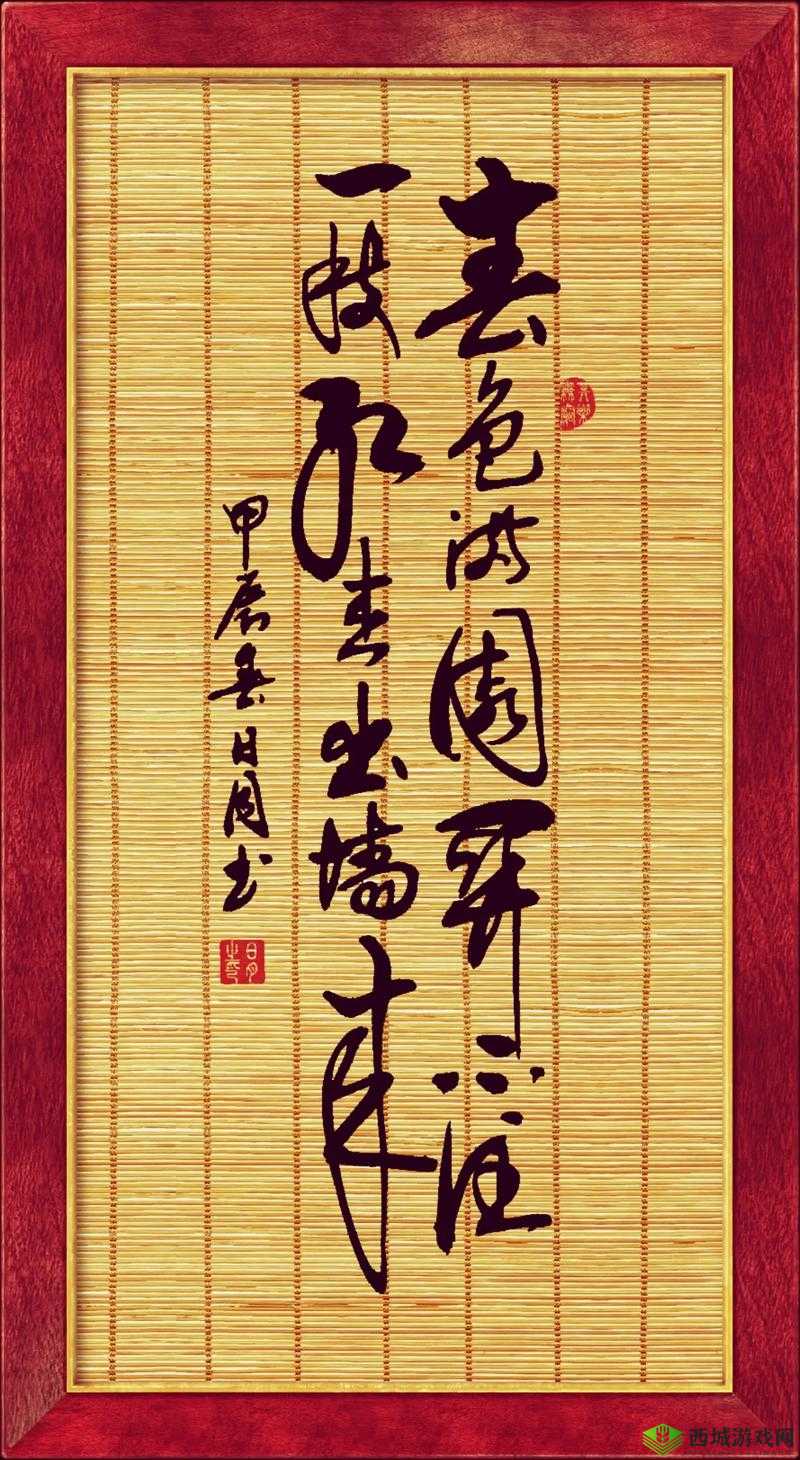 春色满园关不住
一枝红杏出墙来
甲辰春日月书
西城游戏网